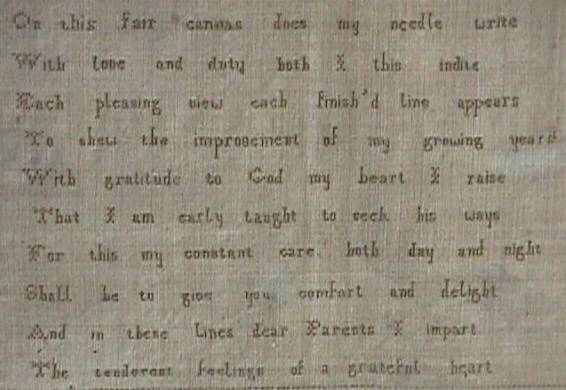 On this fair canvas does my needle write
With love and duty both I this indite
Each pleasing view each finish'd line appears
To shew the improvement of my growing years
With gratitude to God my heart I raise
That I am early taught to seek his ways
For this my constant care both day and night
Shall be to give you comfort and delight
And in these lines dear Parents I impart
The tenderest feelings of a grateful heart